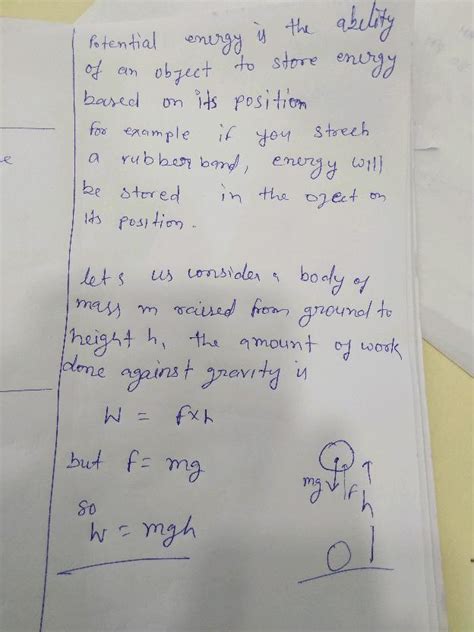 Potential energy is the abelity
of an object to store energy
based on its position
for example if you strech
a rubber band, energy will
be stored in the oject on
its position.
let's us consider a body of
mass m raised from ground to
height h, the amount of work
done against gravity is
W = f×h
but f = mg
so
W = mgh
mg
f
h